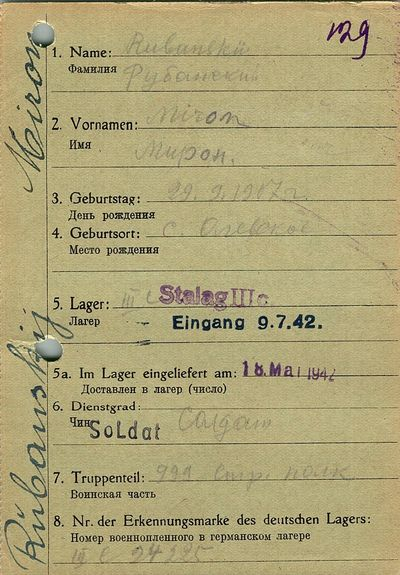 129
Miron
Rubanskij
1. Name: Rubanskij
Фамилия Рубанский
2. Vornamen: Miron
Имя Мирон.
3. Geburtstag: 29.9.1907г.
День рождения
4. Geburtsort: с.
Место рождения
5. Lager: III C Stalag IIIc
Лагер Eingang 9.7.42.
5a. Im Lager eingeliefert am: 18. Mai 1942
Доставлен в лагер (число)
6. Dienstgrad:
Чин Soldat Солдат
7. Truppenteil: 999 Стр. полк
Воинская часть
8. Nr. der Erkennungsmarke des deutschen Lagers:
Номер военнопленного в германском лагере
III C